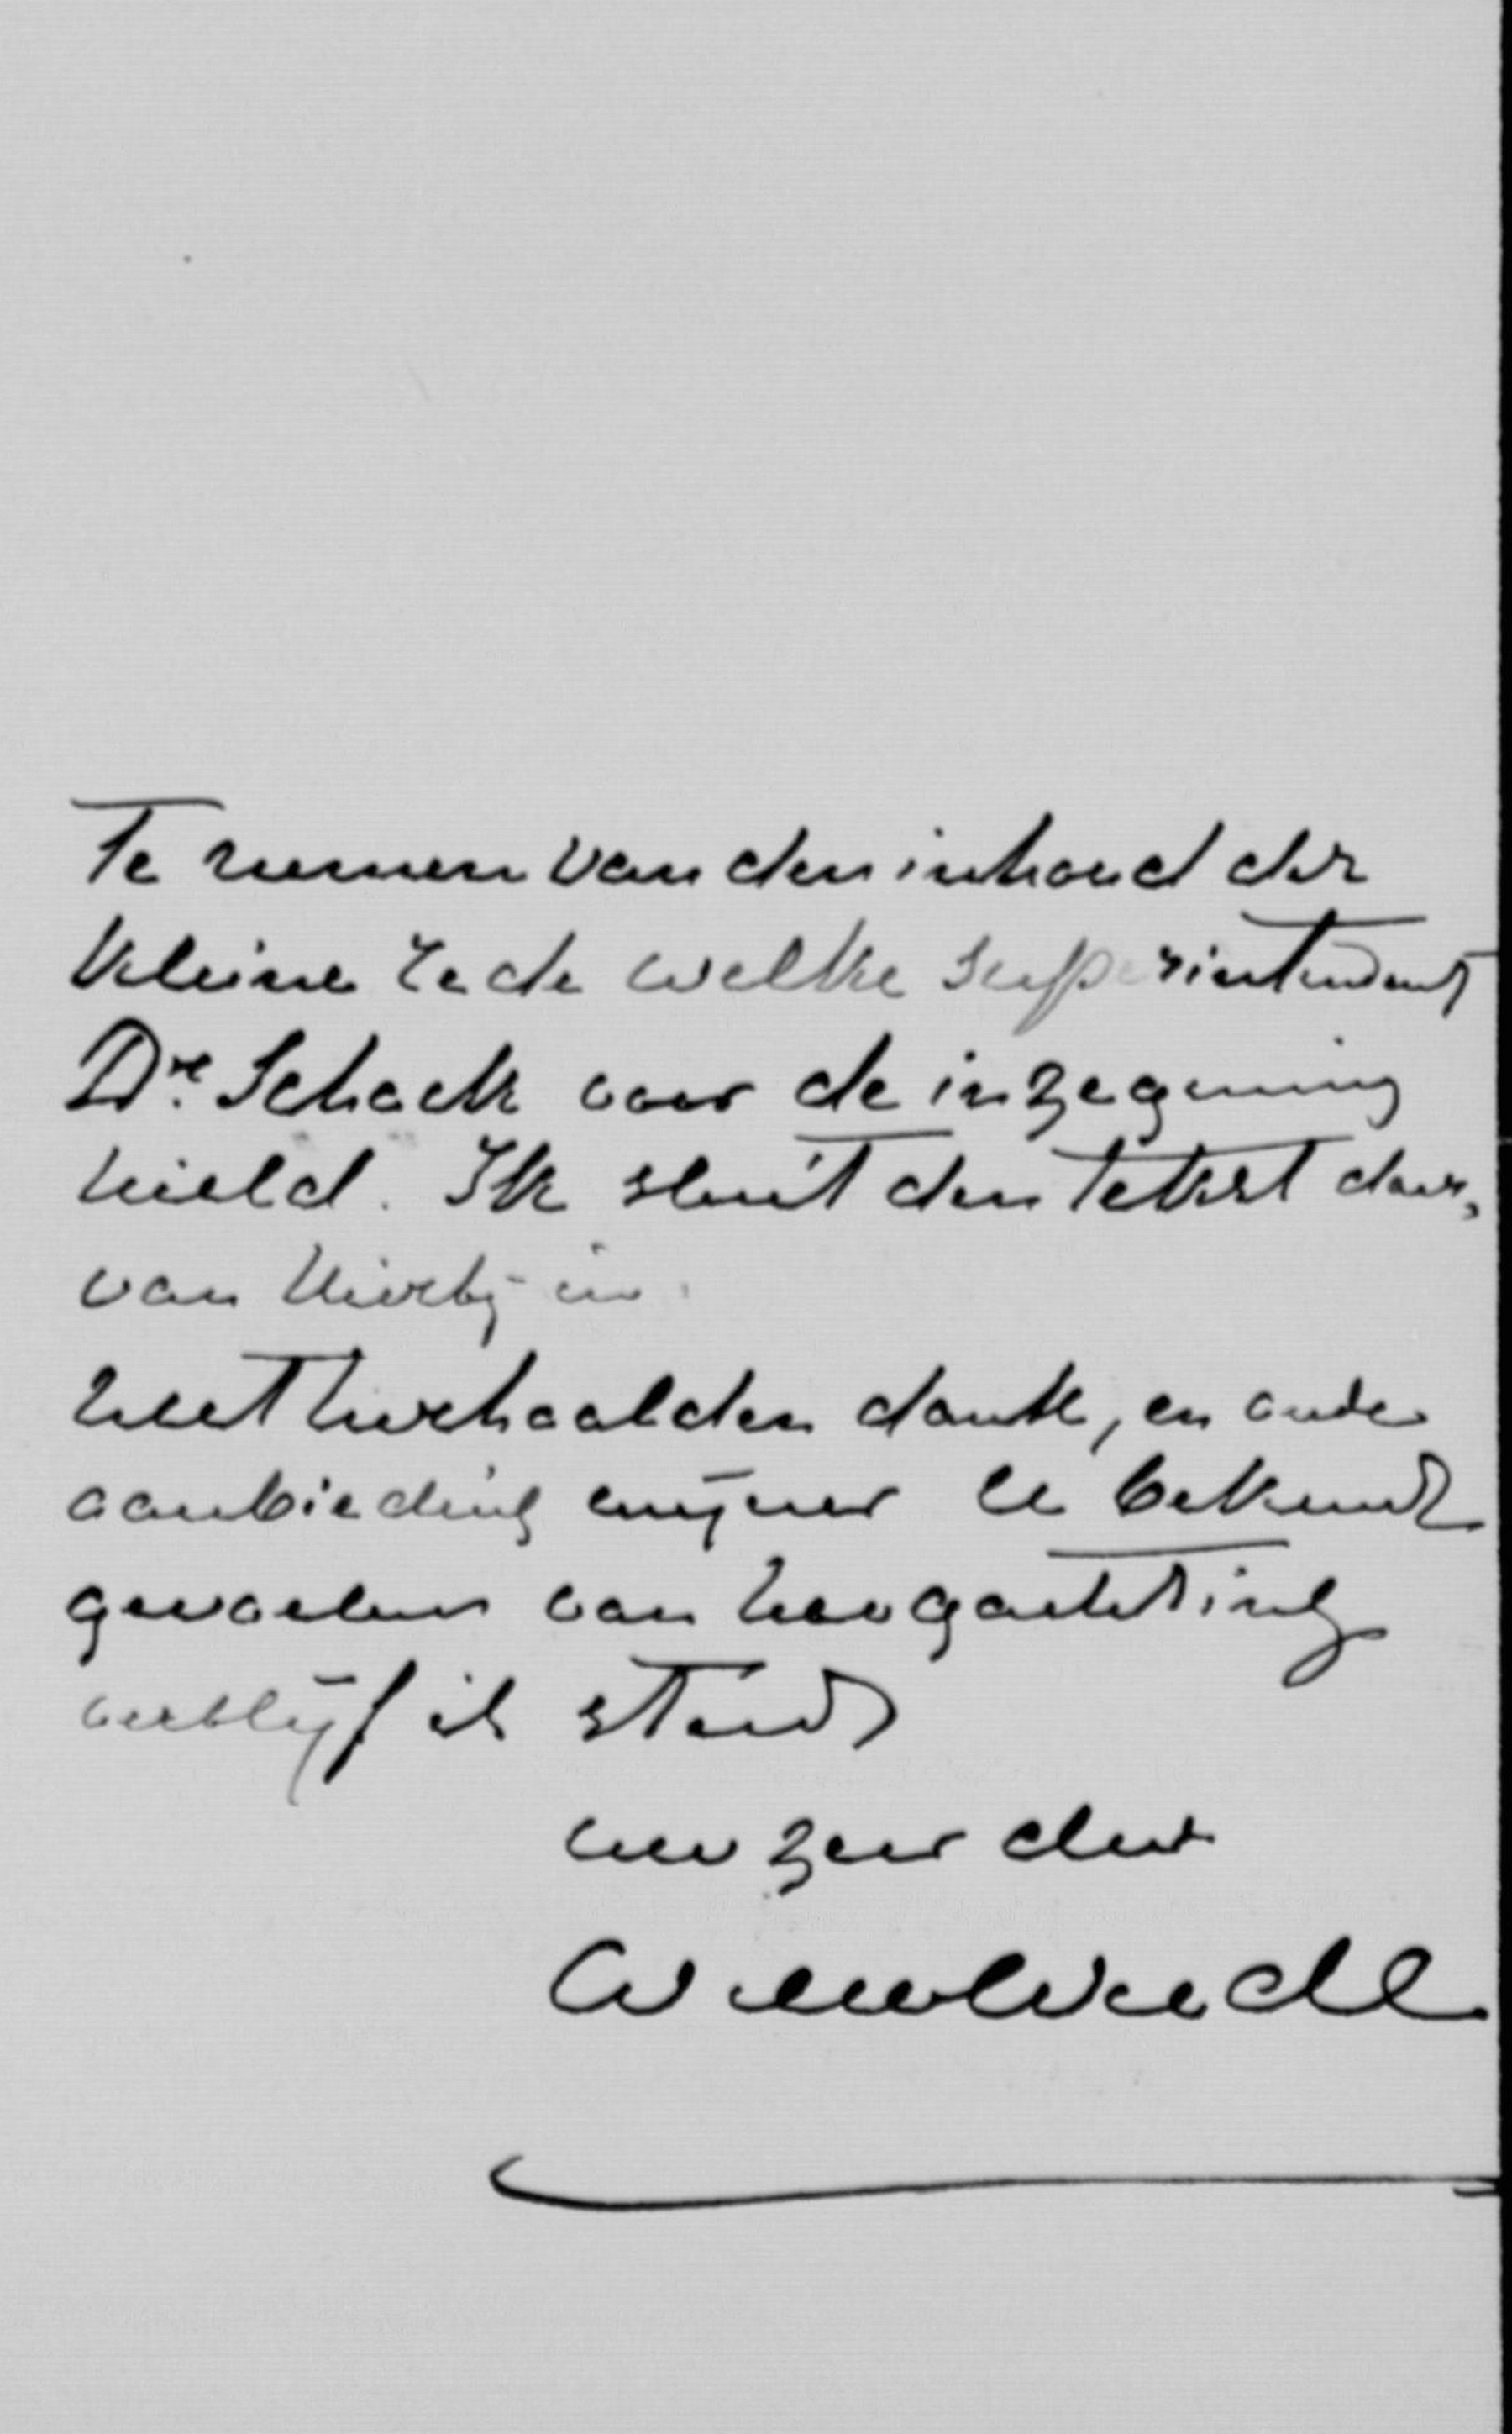 Te nemen van den inhoud der
kleine rede welke superintendent
Dr. Schack voor de inzegening
hield. Ik sluit den tekst daar,
van hierbij in.
Met herhaalden dank, en onder
aanbieding mijner U bekende
gevoelens van hoogachting
verblijf ik steeds
uw zeer dw